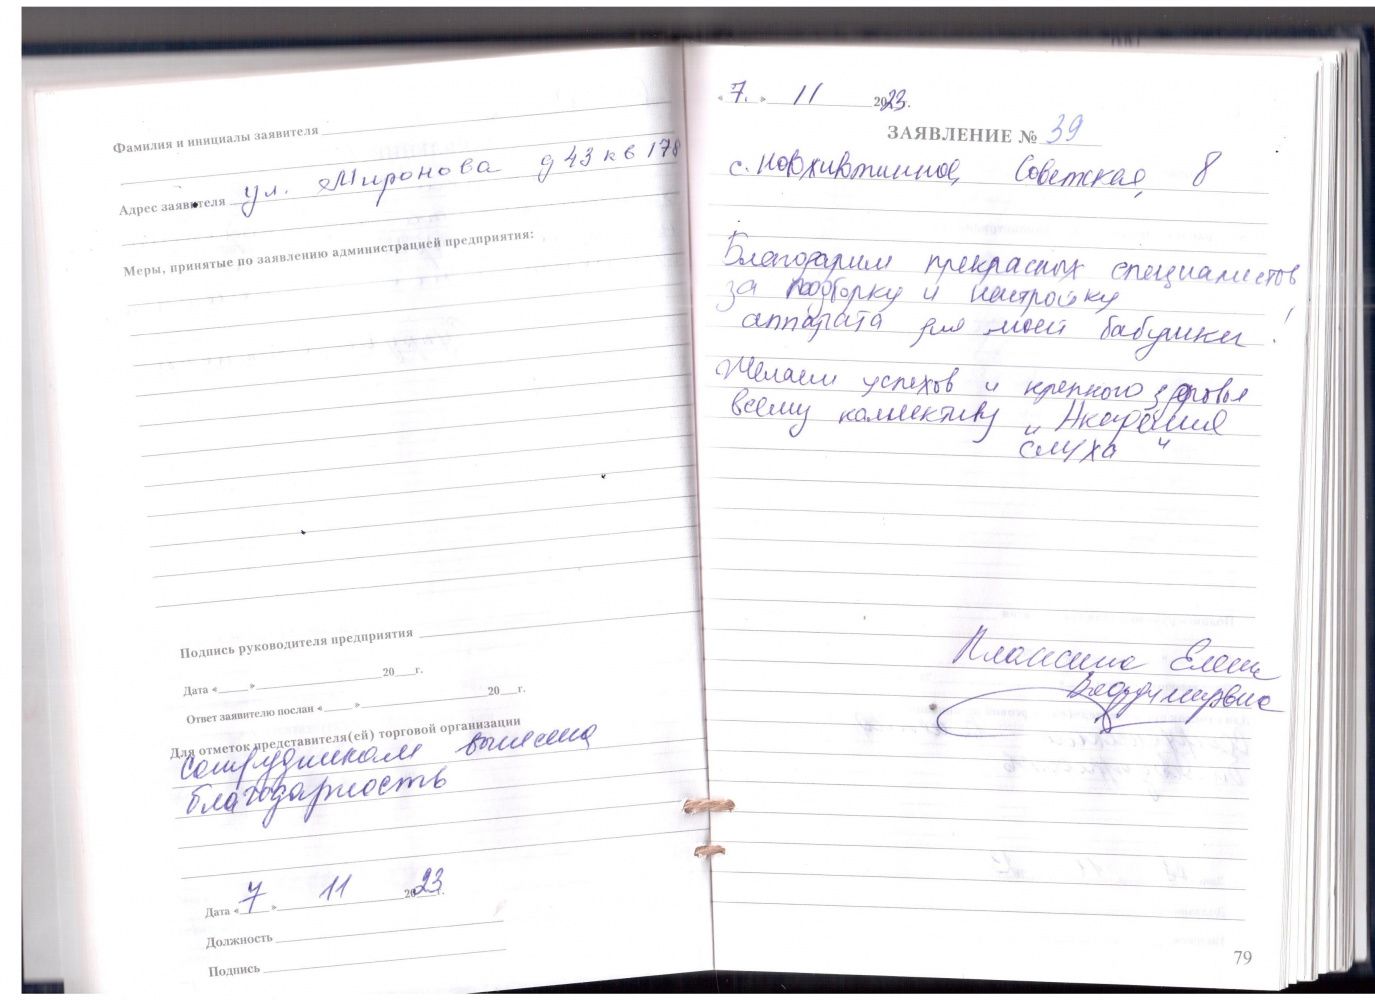 Фамилия и инициалы заявителя
Адрес заявителя ул. Миронова д 43 кв 178
Меры, принятые по заявлению администрацией предприятия:
Подпись руководителя предприятия
Дата «____» ____ 20__г.
Ответ заявителю послан «____» ____ 20__г.
Для отметок представителя(ей) торговой организации
Сотрудникам вынесена
благодарность
Дата «7» 11 2023г.
Должность
Подпись
«7.» 11 2023.
ЗАЯВЛЕНИЕ № 39
с. Советская, 8
Благодарим прекрасных специалистов
за подборку и настройку
аппарата для моей бабушки!
Желаем успехов и крепкого здоровья
всему коллективу „Академия
слуха"
Елена
Владимировна
79